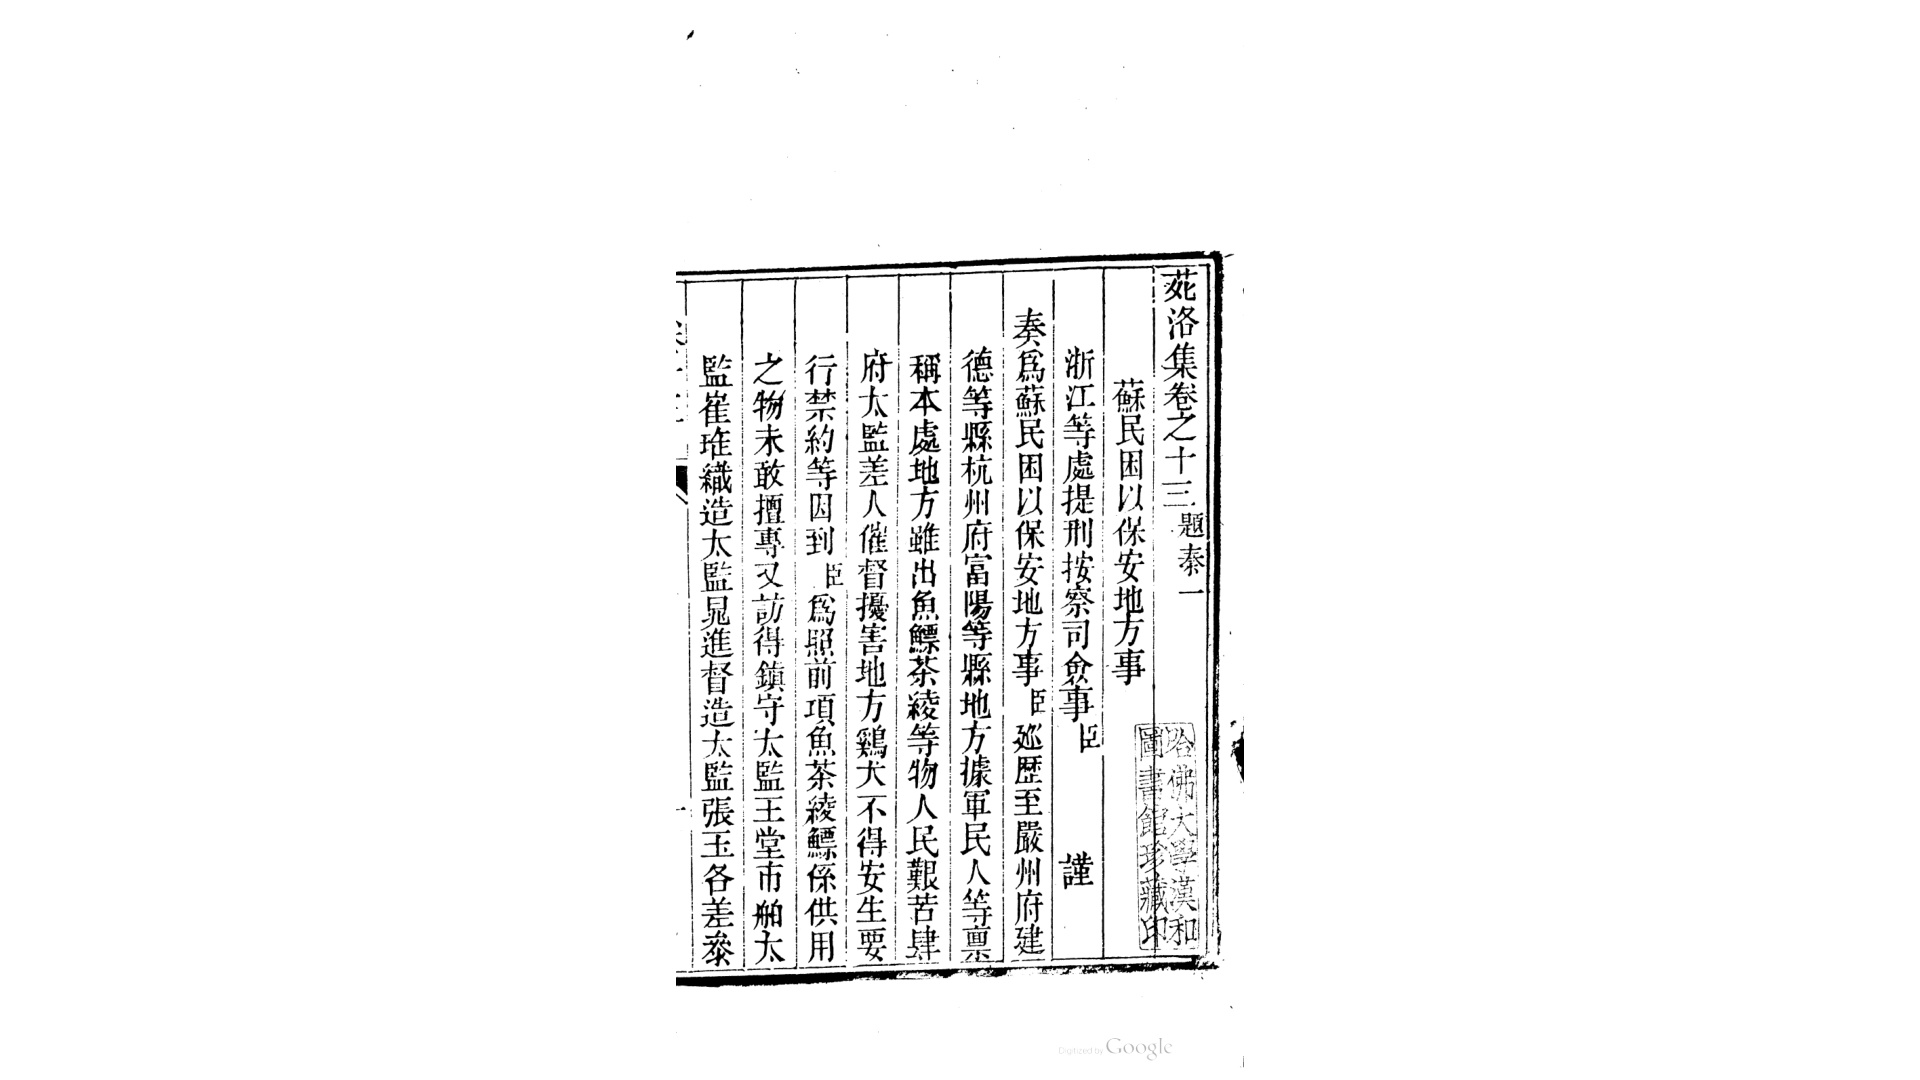 苑洛集卷之十三 題奏一
蘇民困以保安地方事
浙江等處提刑按察司僉事臣 謹
奏爲蘇民困以保安地方事臣廵歷至嚴州府建
德等縣杭州府富陽等縣地方據軍民人等稟
稱本處地方雖出魚鰾茶綾等物人民艱苦肆
府太監差人催督擾害地方鷄犬不得安生要
行禁約等因到臣爲照前項魚茶綾鰾係供用
之物未敢擅專又訪得鎮守太監王堂市舶太
監崔琟織造太監晁進督造太監張玉各差叅
哈佛大學漢和
圖書館珍藏印
Digitized by Google